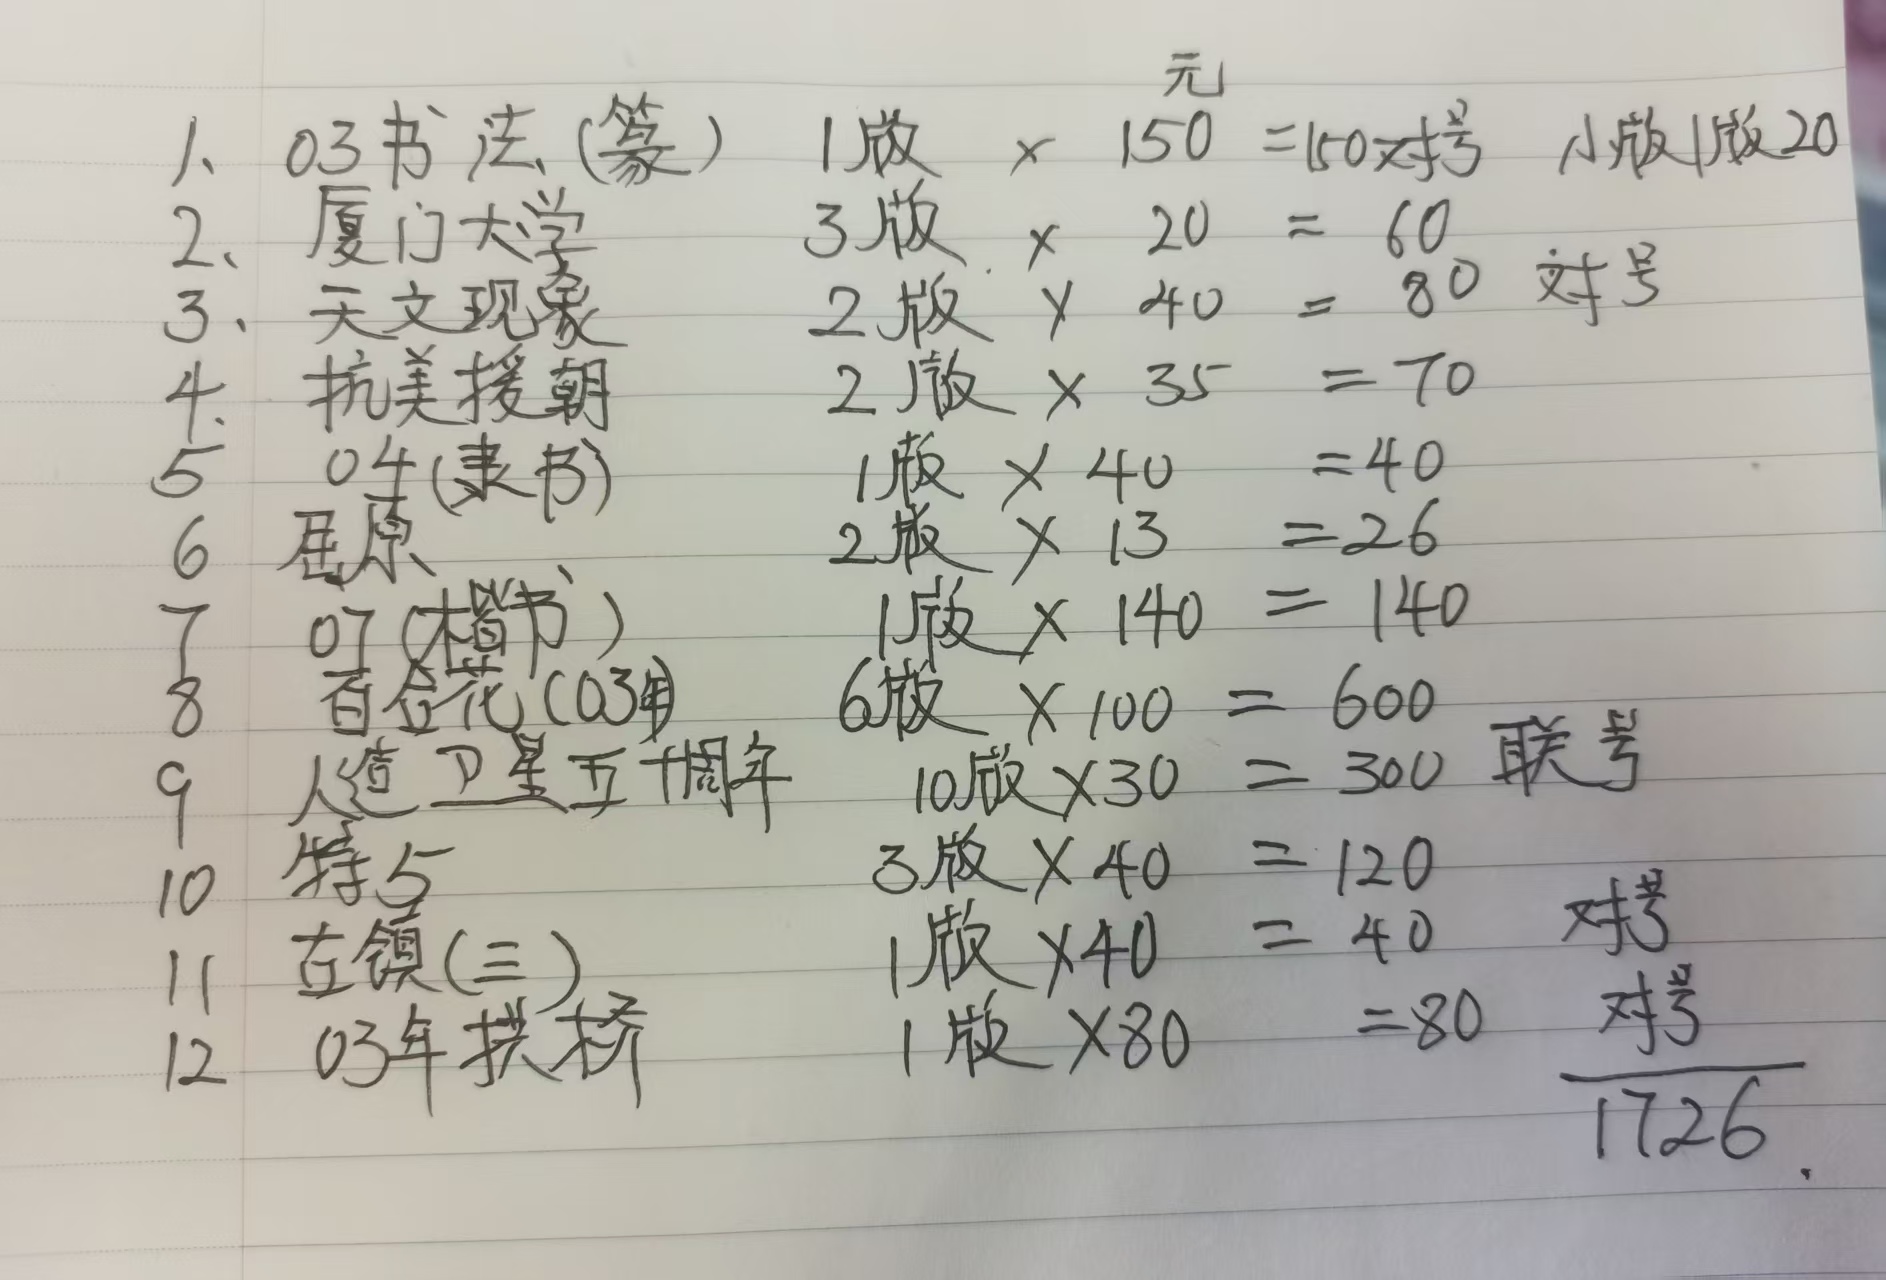 元
1、 03书法(篆) 1版 × 150 =150对号 小版1版20
2、 厦门大学 3版 × 20 = 60
3、 天文现象 2版 × 40 = 80 对号
4. 抗美援朝 2版 × 35 = 70
5 04(隶书) 1版 × 40 =40
6 屈原 2版 × 13 =26
7 07(楷书) 1版 × 140 = 140
8 百合花(03年) 6版 × 100 = 600
9 人造卫星五十周年 10版×30 = 300 联号
10 特5 3版×40 = 120
11 古镇(三) 1版×40 = 40 对号
12 03年拱桥 1版×80 =80 对号
1726.